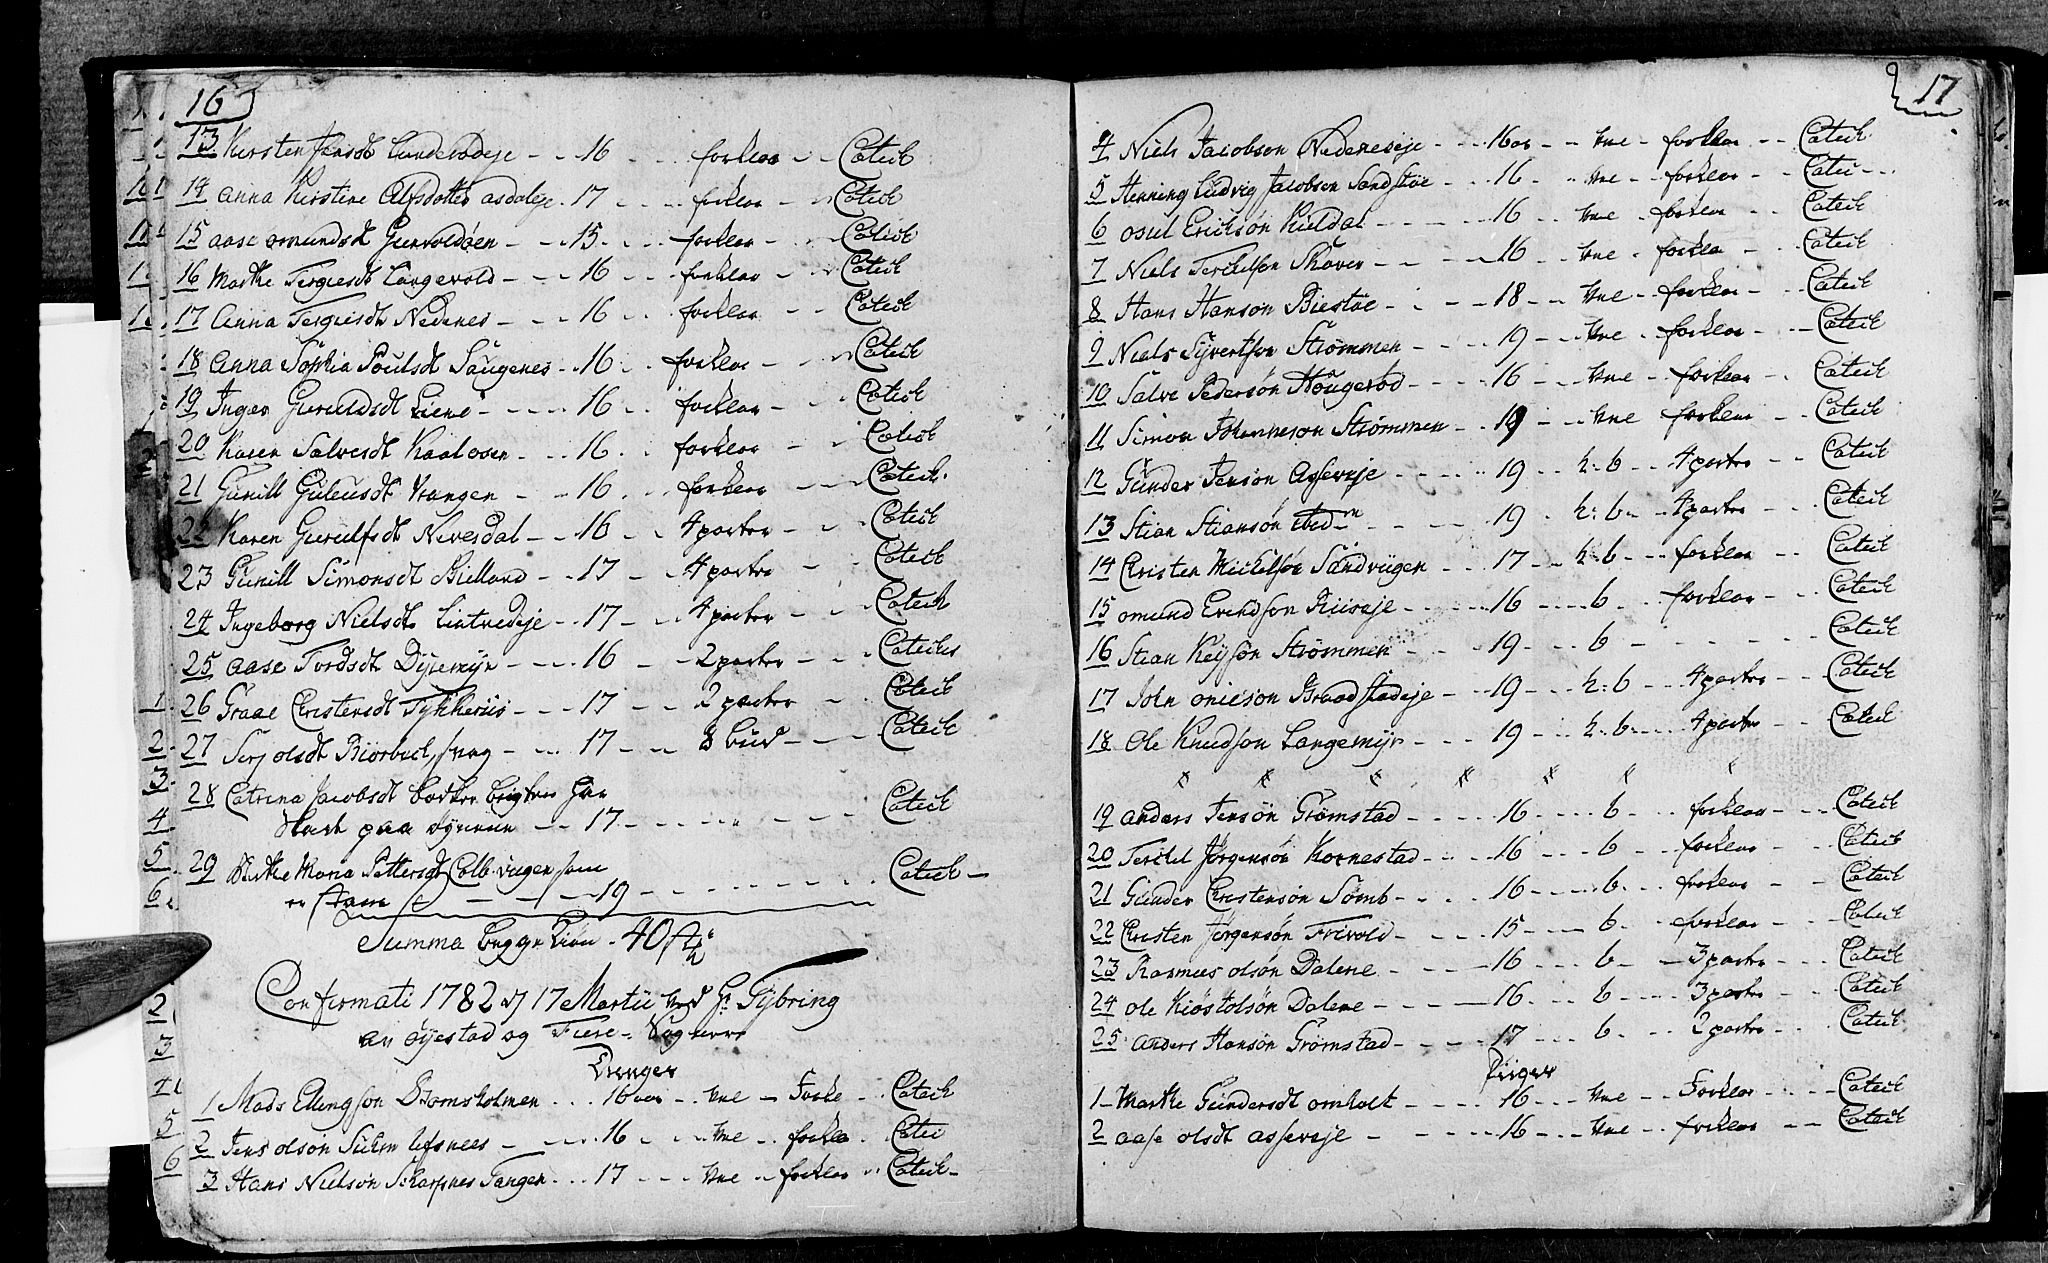 16
13 Kirsten Jensdt Lunderødeje - - 16 - - forklar - - Catech
14 Anna Kirstine Alfsdotter asdaleje - 17 - - forklar - - Catech
15 aase omundsdt Gunvoldøen - - 15 - - forklar - - Catech
16 Marthe Tergiesdt Langevold - - 16 - - forklar - - Catech
17 Anna Tergiesdt Nedenes - - 16 - - forklar - - Catech
18 Anna Sophia Poulsdt Saugenes - - 16 - - forklar - - Catech
19 Inger Gunuldsdt Liene - - 16 - - forklar - - Catech
20 Karen Salvesdt Kaalosen - - 16 - - forklar - - Catech
21 Gunill Guleusdt Vrangen - - 16 - - forklar - - Catech
22 Karen Gunulfsdt Nevesdal - - 16 - - 4 parter - - Catech
23 Gunill Simonsdt Bielland - - 17 - - 4 parter - - Catech
24 Ingeborg Nielsdt Lintvedeje - - 17 - - 4 parter - - Catech
25 aase Tordsdt Dyremyr - - 16 - - 2 parter - - Catech
26 Graae Christensdt Tykkeruis - - 17 - - 2 parter - - Catech
27 Seri olsdt - - 17 - - 8 bud - - Catech
28 Catrina Jacobsdt
paa øynene - - 17 - - Catech
29 Marthe Maria Pettersdt Colb: som
er Stam - - 19 - - Catech
Summa begge Kiøn - 40 st
Confirmati 1782 d 17 Martii ved Hr Gybring
av øyestad og Fiere - Sognerne
Drenger
1 Mads Ellingsøn Stamsholmen - - 16 aar - - vne - Forkl - - Catech
2 Jens olsøn - - 16 - - vne - - forkla - - Catec
3 Hans Nielsøn Skarpnes Tangen - - 17 - - vne - - forklar - - Catech
17
4 Niels Jacobsøn Nedeneseje - - 16 aar - - vne - forklar - - Catech
5 Henning Ludvig Jacobsøn Sandstøe - - 16 - - vne - - forklar - - Catec
6 osul Ericksøn Kieldal - - 16 - - vne - - forklar - - Catech
7 Niels Terkelsøn Skover - - 16 - - vne - forkla - - Catech
8 Hans Hansøn Biestøe - - 18 - - vne - - forklar - - Catech
9 Niels Syvertsøn Strømmen - - 19 - - vne - - forklar - - Catech
10 Salve Pedersøn Hougerød - - 16 - - vne - - forklar - - Catech
11 Simon Johannesøn Strømmen - - 19 - - vne - forklar - - Catech
12 Gunder Jensøn Asseveje - - 19 - - h: b - - 4 parter - - Catech
13 Stian Stiansøn ibidm - - 19 - - h: b - - 4 parter - - Catech
14 Christen Mickelsøn Sandvigen - - 17 - - h: b - - forklar - - Catech
15 omund Evindsøn Riiseje - - 16 - - b - - forklar - - Catech
16 Stian Keysøn Strømmen - - 19 - - b - - Catech
17 John oniesøn Braadstadeje - - 19 - - h: b - - 4 parter - - Catech
18 Ole Knudsøn Langemyr - - 19 - - h: b - - 4 parter - - Catech
19 Anders Jensøn Grømstad - - 16 - - b - - forklar - - Catech
20 Terkel Jørgensøn Kornestad - - 16 - - b - - forklar - - Catech
21 Gunder Christensøn Sømb - - 16 - - b - - forklar - - Catech
22 Christen Jørgensøn Frivold - - 15 - - b - - forklar - - Catech
23 Rasmus olsøn Dalene - - 16 - - b - - 3 parter - - Catech
24 Ole Kiøstolsøn Dalene - - 16 - - b - - 3 parter - - Catech
25 Anders Hansøn Grømstad - - 17 - - b - - 2 parter - - Catech
Piiger
1 Marthe Gundersdt omholt - - 16 - - vne - - Forklar - - Catech
2 aase olsdt asseveje - - 16 - - vne - - forklar - - Catech